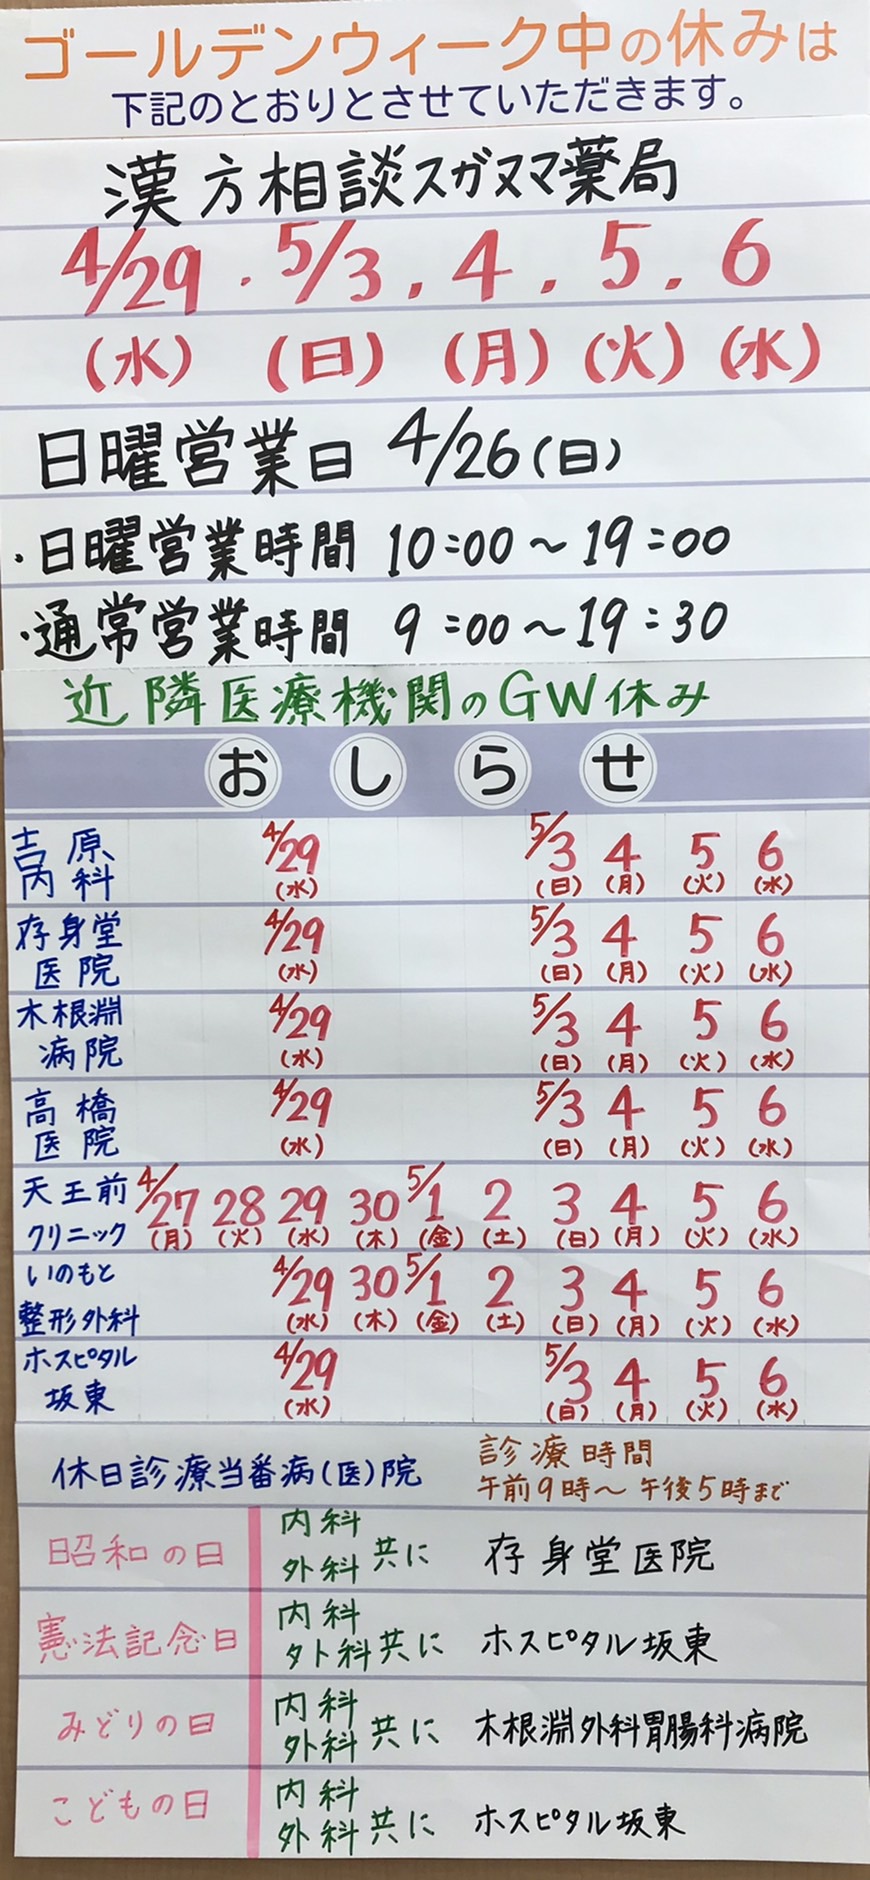 ゴールデンウィーク中の休みは
下記のとおりとさせていただきます。
漢方相談スガヌマ薬局
4/29 . 5/3 . 4 . 5 . 6
(水) (日) (月) (火) (水)
日曜営業日 4/26(日)
・日曜営業時間 10:00～19:00
・通常営業時間 9:00～19:30
近隣医療機関のGW休み
おしらせ
吉原 4/29 5/3 4 5 6
内科 (水) (日) (月) (火) (水)
存身堂 4/29 5/3 4 5 6
医院 (水) (日) (月) (火) (水)
木根淵 4/29 5/3 4 5 6
病院 (水) (日) (月) (火) (水)
高橋 4/29 5/3 4 5 6
医院 (水) (日) (月) (火) (水)
天王前 4/27 28 29 30 5/1 2 3 4 5 6
クリニック (月) (火) (水) (木) (金) (土) (日) (月) (火) (水)
いのもと 4/29 30 5/1 2 3 4 5 6
整形外科 (水) (木) (金) (土) (日) (月) (火) (水)
ホスピタル 4/29 5/3 4 5 6
坂東 (水) (日) (月) (火) (水)
休日診療当番病(医)院
診療時間
午前9時～午後5時まで
昭和の日 内科
外科共に 存身堂医院
憲法記念日 内科
外科共に ホスピタル坂東
みどりの日 内科
外科共に 木根淵外科胃腸科病院
こどもの日 内科
外科共に ホスピタル坂東